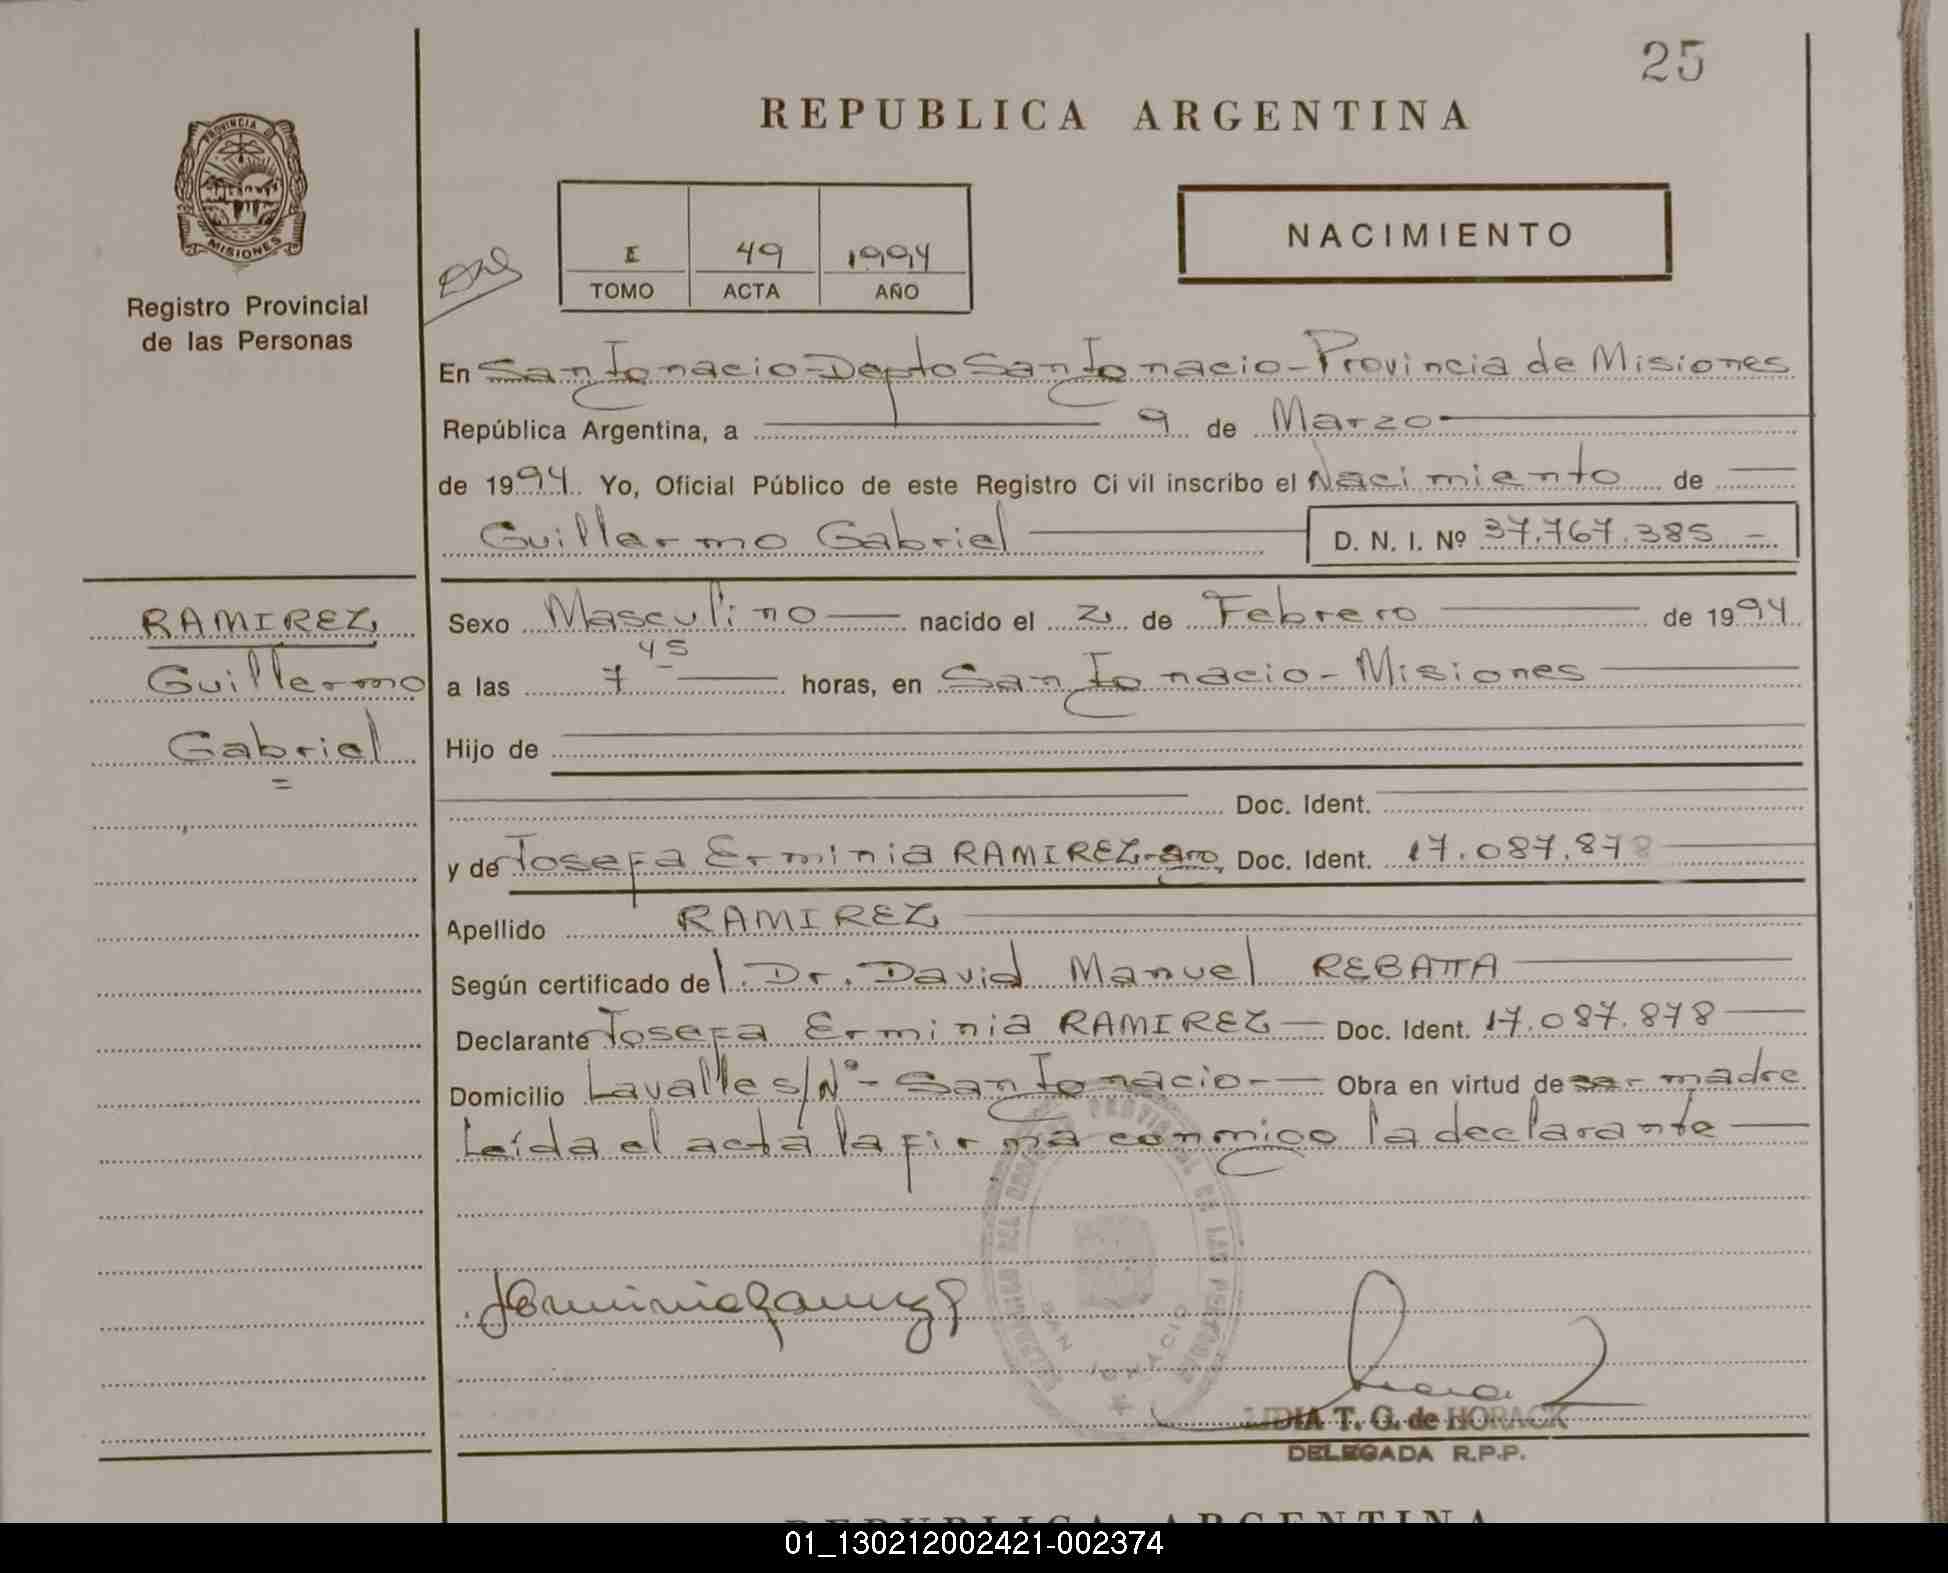 25
REPUBLICA ARGENTINA
PROVINCIA DE
MISIONES
Registro Provincial
de las Personas
NACIMIENTO
I 49 1994
TOMO ACTA AÑO
En San Ignacio - Depto San Ignacio - Provincia de Misiones
República Argentina, a 9 de Marzo
de 1994. Yo, Oficial Público de este Registro Civil inscribo el Nacimiento de
Guillermo Gabriel D. N. I. Nº 37.767.385
RAMIREZ
Guillermo
Gabriel
Sexo Masculino nacido el 21 de Febrero de 1994
a las 7 45 horas, en San Ignacio - Misiones
Hijo de
Doc. Ident.
y de Josefa Erminia RAMIREZ - arg. Doc. Ident. 17.087.878
Apellido RAMIREZ
Según certificado del Dr. David Manuel REBATTA
Declarante Josefa Erminia RAMIREZ Doc. Ident. 17.087.878
Domicilio Lavalle s/Nº - San Ignacio - Obra en virtud de ser madre
Leída el acta la firma conmigo la declarante
SAN IGNACIO
LIDIA T. G. de HORACK
DELEGADA R.P.P.
REPUBLICA ARGENTINA
01_130212002421-002374